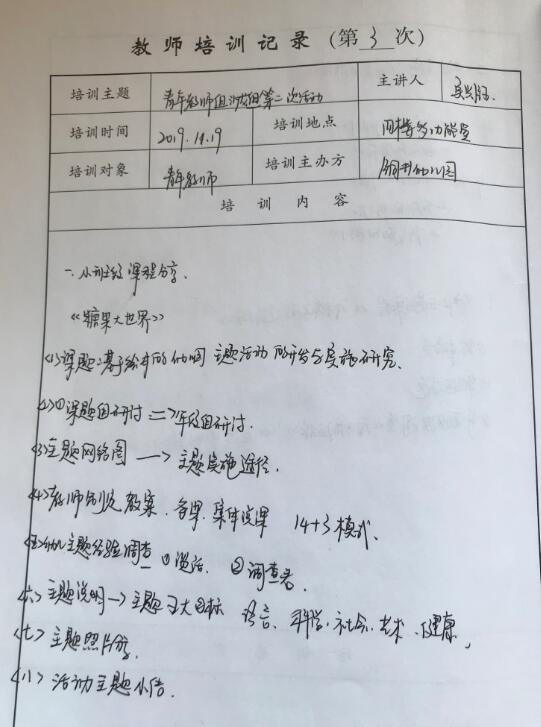 教师培训记录(第 3 次)
培训主题 青年教师组沙龙组第二次活动 主讲人
培训时间 2019.11.19 培训地点 多功能室
培训对象 青年教师 培训主办方 幼儿园
培训内容
一、小班级课程分享.
《糖果大世界》
<1>课题:基于绘本的幼儿园主题活动的开发与实施研究.
<2>①课题组研讨 => 年级组研讨.
<3>主题网络图 —> 主题实施途径.
<4>教师 教案. 备课. 集体议课 14+3模式.
<五>幼儿主题经验调查 ①谈话. ②调查表.
<六>主题说明—>主题五大目标 语言、科学、社会、艺术、健康,
<七>主题照片分享.
<八>活动主题小结.